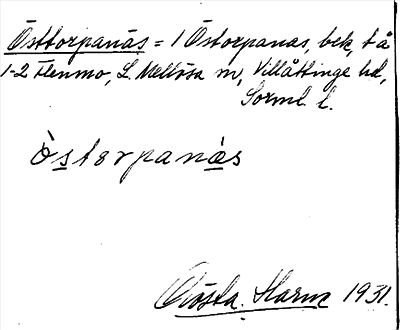 Östtorpanäs = 1 Östorpanas, bek, t å
1-2 Flenmo, L. Mellösa sn, Villåttinge hd,
Sörml. l.
òstorpanàs
Gösta Harm 1931.